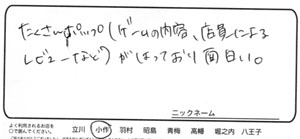 たくさんポップ(ゲームの内容、店員による
レビューなど)がはっており面白い。
ニックネーム
よく利用されるお店を
○で囲んでください。
立川 小作 羽村 昭島 青梅 高幡 堀之内 八王子